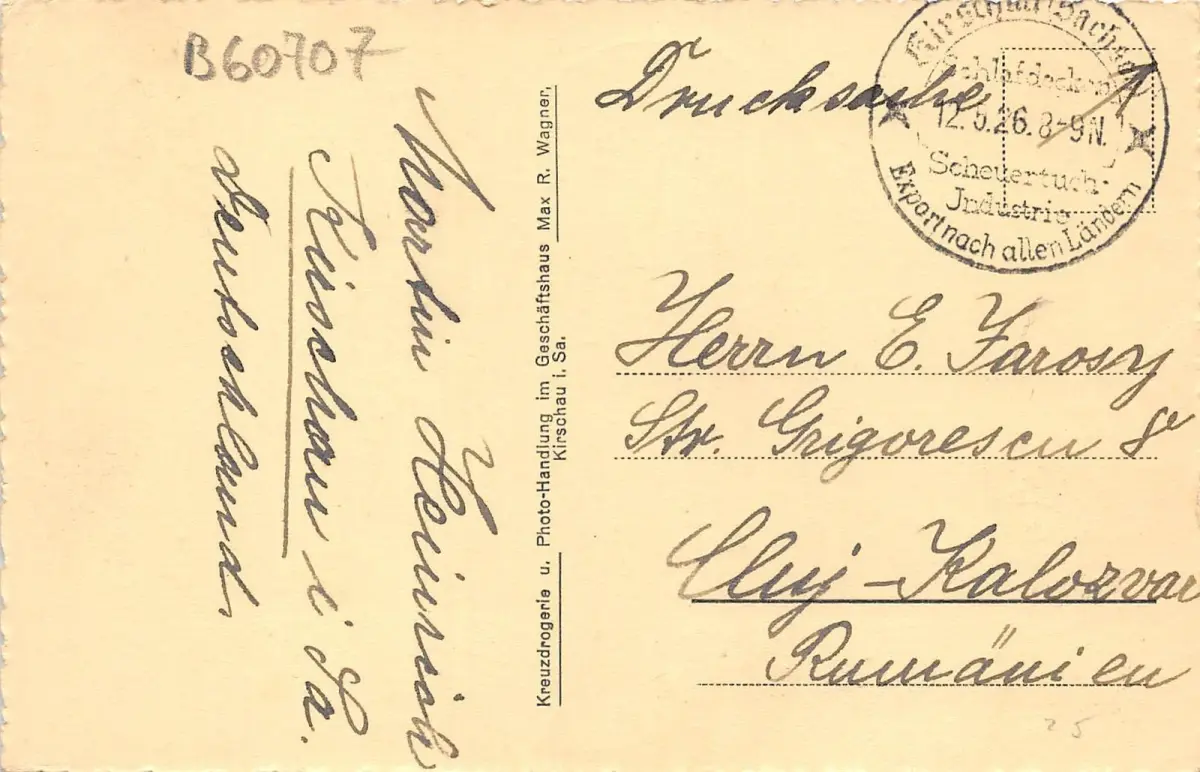 B60707
Martin Heinrich
Kirschau i. Sa.
Deutschland.
Kreuzdrogerie u. Photo-Handlung im Geschäftshaus Max R. Wagner,
Kirschau i. Sa.
Drucksache
Kirschau (Sachsen)
Schlafdecken
12.5.26.8-9N.
Scheuertuch-
Industrie
Export nach allen Ländern
Herrn E. Farosy
Str. Grigorescu 8
Cluj-Kalozvar
Rumänien
25